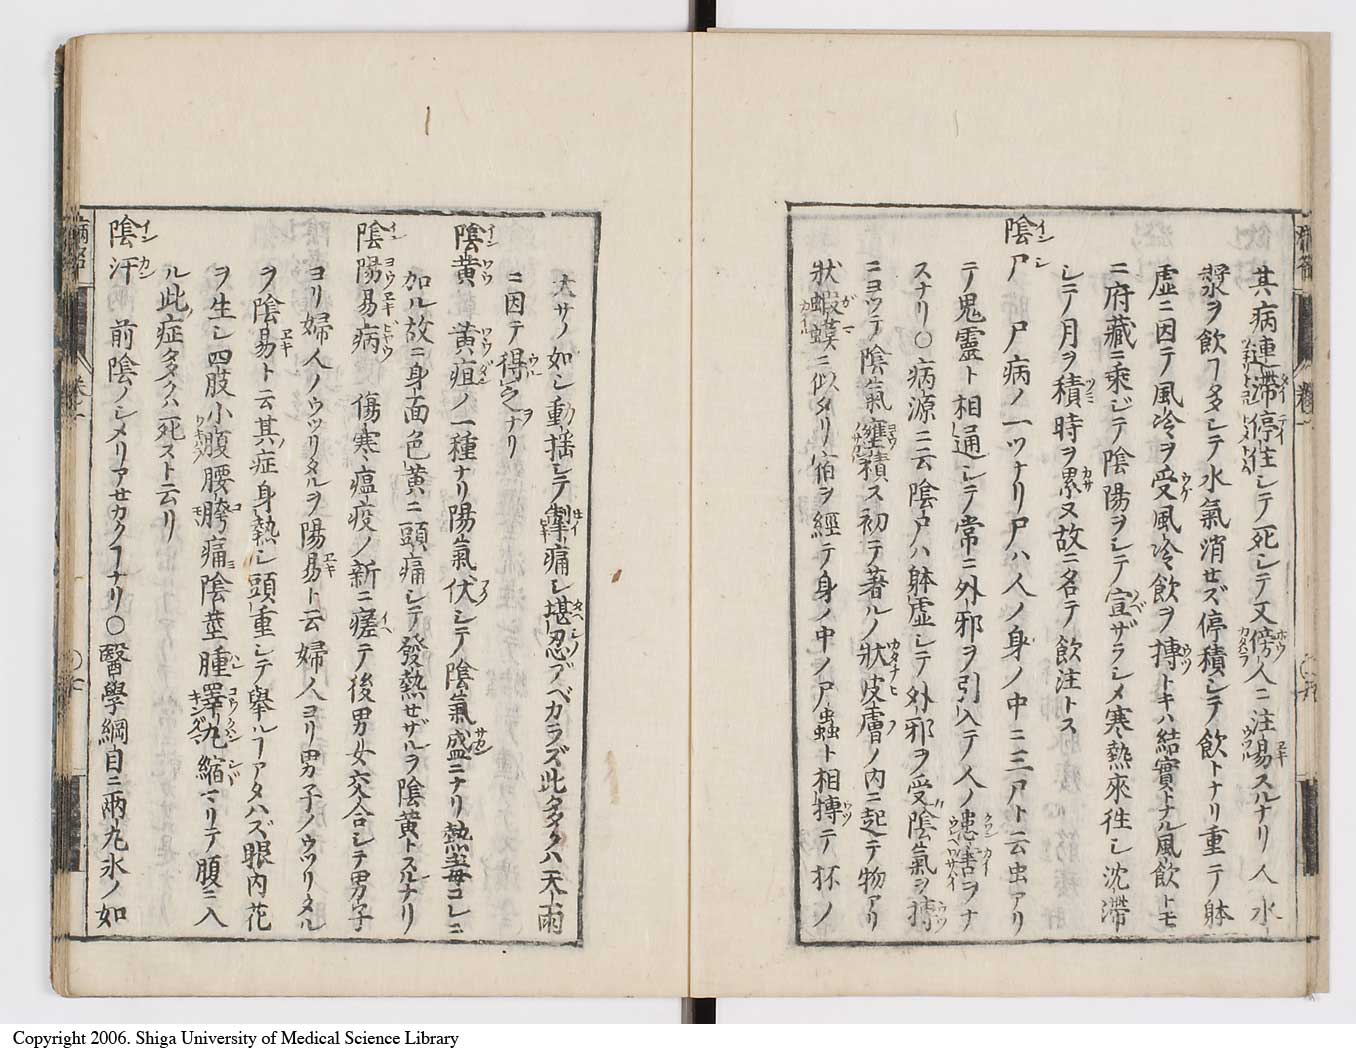 其病連滞停住シテ死シテ又傍人ニ注易スルナリ人水
漿ヲ飲ヿ多シテ水氣消セズ停積シテ飲トナリ重テ躰
虚ニ因テ風冷ヲ受風冷飲ヲ搏トキハ結實トナル風飲トモ
ニ府藏ニ乘ジテ陰陽ヲシテ宣ザラシメ寒熱來徃シ沈滞
シテ月ヲ積時ヲ累又故ニ名テ飲注トス
陰尸 尸病ノ一ツナリ尸ハ人ノ身ノ中ニ三尸ト云虫アリ
テ鬼靈ト相通シテ常ニ外邪ヲ引入テ人ノ患害ヲナ
スナリ〇病源ニ云陰尸ハ躰虚シテ外邪ヲ受陰氣ヲ搏
ニヨツテ陰氣壅積ス初テ著ルノ狀皮膚ノ内ニ起テ物アリ
狀蝦蟆ニ似タリ宿ヲ經テ身ノ中ノ尸蟲ト相搏テ杯ノ
大サノ如シ動揺シテ掣痛シ堪忍アベカラズ此多クハ天雨
ニ因テ得之ナリ
陰黄 黄疸ノ一種ナリ陽氣伏シテ陰氣盛ニナリ熱毒コレニ
加ル故ニ身面色黄ニ頭痛シテ發熱セザルヲ陰黄トスルナリ
陰陽易病 傷寒瘟疫ノ新ニ瘥テ後男女交合シテ男子
ヨリ婦人ノウツリタルヲ陽易ト云婦人ヨリ男子ノウツリタル
ヲ陰易ト云其症身熱シ頭重シテ舉ルヿアタハズ眼内花
ヲ生シ四肢小腹腰胯痛陰莖腫睪丸縮マリテ腹ニ入
ル此症多クハ死スト云リ
陰汗 前陰ノシメリアセカクヿナリ〇醫學綱目ニ兩丸氷ノ如
卷一
Copyright 2006. Shiga University of Medical Science Library